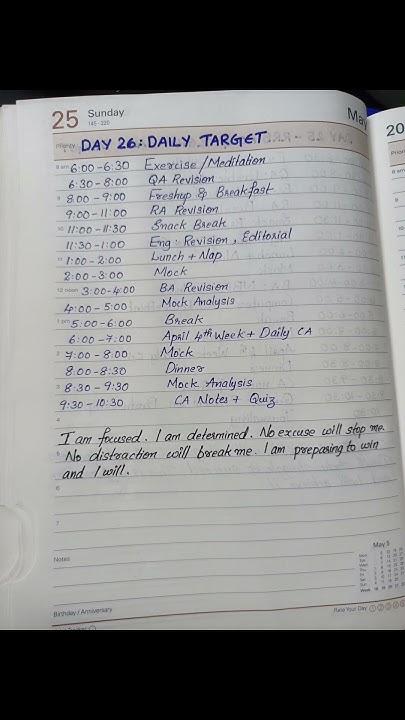 25 Sunday May
145 - 220
20
Priority DAY 26: DAILY TARGET
8 am 6:00 - 6:30 Exercise/Meditation
6:30 - 8:00 QA Revision
9 8:00 - 9:00 Freshup & Breakfast
9:00 - 11:00 RA Revision
10 11:00 - 11:30 Snack Break
11:30 - 1:00 Eng: Revision, Editorial
11 1:00 - 2:00 Lunch + Nap
2:00 - 3:00 Mock
12 noon 3:00 - 4:00 BA Revision
4:00 - 5:00 Mock Analysis
1 pm 5:00 - 6:00 Break
6:00 - 7:00 April 4th Week + Daily CA
2 7:00 - 8:00 Mock
8:00 - 8:30 Dinner
3 8:30 - 9:30 Mock Analysis
9:30 - 10:30 CA Notes + Quiz
4
I am focused. I am determined. No excuse will stop me.
5 No distraction will break me. I am preparing to win
and I will.
6
7
Notes
May 5
Mon
Tue
Wed
Thu
Fri
Sat
Sun
Week
Birthday / Anniversary Rate Your Day 1 2 3 4 5